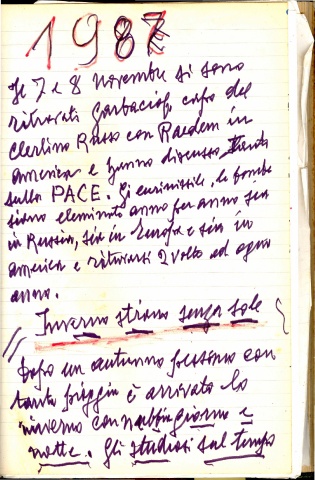 1987
Il 7 e 8 novembre si sono
ritrovati Garbaciof, capo del
Clerlino Russo con Raedem in
america e hanno discusso tanto
sulla PACE. Gli eurimissile, le bombe
siano eleminate anno per anno sia
in Russia, sia in Europa e sia in
america e ritrovarsi 2 volte ad ogni
anno.
Inverno strano senza sole
Dopo un autunno pessimo con
tanta pioggia è arrivato lo
inverno con nebbia giorno e
notte. Gli studiosi sul tempo